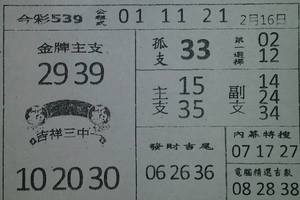 今彩539 公推式 01 11 21 2月16日
金牌主支
29 39
吉祥三中一
10 20 30
孤支 33
第一選擇 02 12
主支 15 35
副支 14 24 34
發財吉尾
06 26 36
內幕特搜
07 17 27
電腦精選吉數
08 28 38